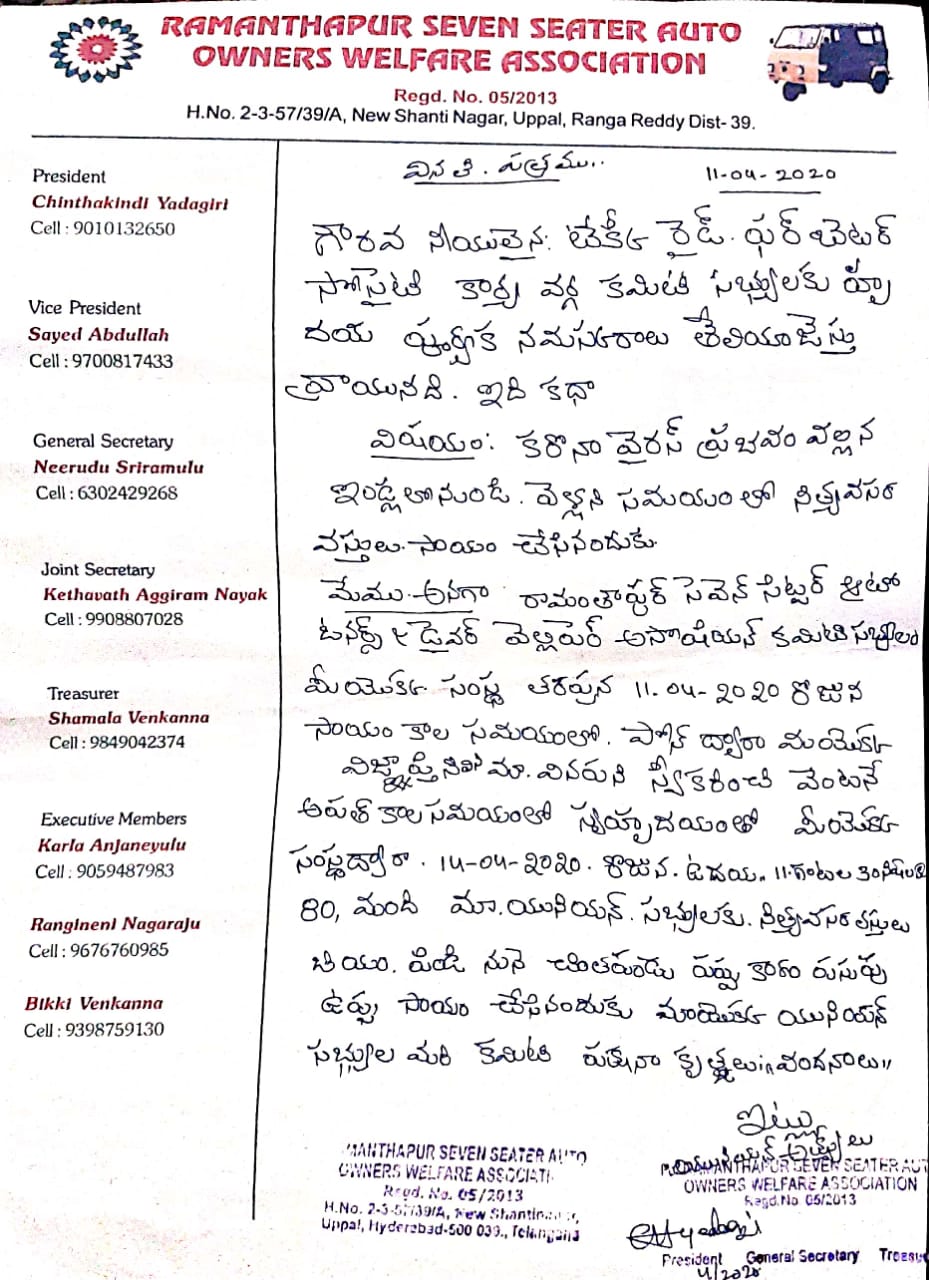 RAMANTHAPUR SEVEN SEATER AUTO
OWNERS WELFARE ASSOCIATION
Regd. No. 05/2013
H.No. 2-3-57/39/A, New Shanti Nagar, Uppal, Ranga Reddy Dist- 39.
President
Chinthakindi Yadagiri
Cell : 9010132650
Vice President
Sayed Abdullah
Cell : 9700817433
General Secretary
Neerudu Sriramulu
Cell : 6302429268
Joint Secretary
Kethavath Aggiram Nayak
Cell : 9908807028
Treasurer
Shamala Venkanna
Cell : 9849042374
Executive Members
Karla Anjaneyulu
Cell : 9059487983
Rangineni Nagaraju
Cell : 9676760985
Bikki Venkanna
Cell : 9398759130
వినతి. పత్రము..
11-04-2020
గౌరవ నీయులైన: టేకీ రైడ్. ఫర్ బెటర్
సోసైటి కార్య వర్గ కమిటి సభ్యులకు హృ
దయ పూర్వక నమస్కారాలు తేలియాజేస్తు
వ్రాయునది. ఇది కథా
విషయం: కరొనా వైరస్ ప్రభవం వల్లన
ఇండ్లలోనుండి. వెళ్లాని సమయం లో నిత్యవసర
వస్తులు. సాయం చేసినందుకు
మేము అనగా రామంతాపూర్ సెవెన్ సీట్టర్ ఆటో
ఓనర్స్ & డ్రైవర్ వెల్లఫెర్ అసోషియన్ కమిటి సభ్యులం
మీయొక్క సంస్థ తరపున 11.04-2020 రోజున
సాయం కాల సమయంలో. ఫోన్ ద్వారా మాయొక్క
విజ్ఞాప్తిని మా. వినరుని స్వీకరించి వెంటనే
అపత్ కాల సమయంలో స్వహృదయంతో మీయొక్క
సంస్థద్వారా. 14-04-2020. రోజున. ఉదయ. 11 గంటల 30
80, మంది మా. యునియన్. సభ్యులకు. నిత్యవసర వస్తులు
బియం. పిండి నునె చింతపండు పప్పు కారం పసుపు
ఉప్పు సాయం చేసినందుకు మాయొక్క యునియన్
సభ్యుల మరి కమిటి పక్షనా కృతజ్ఞలు వందనాలు
ఇట్లు
MANTHAPUR SEVEN SEATER AUTO
OWNERS WELFARE ASSOCIATI
Regd. No. 05/2013
H.No. 2-3-57/39/A, New Shantinagar,
Uppal, Hyderabad-500 039., Telangana
MANTHAPUR SEVEN SEATER AUT
OWNERS WELFARE ASSOCIATION
Regd.No 05/2013
President General Secretary Treasu